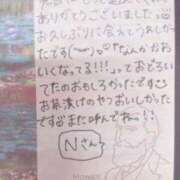 ありがとうございました
お久しぶりに会えてうれしかっ
たです(ˆ⌣ˆ)♡なんかかわ
いくなってる!!!っておどろい
てたのおもしろかったですこ
お茶漬けのやつおいしかった
ですまた呼んでねー!!
Nさんへ